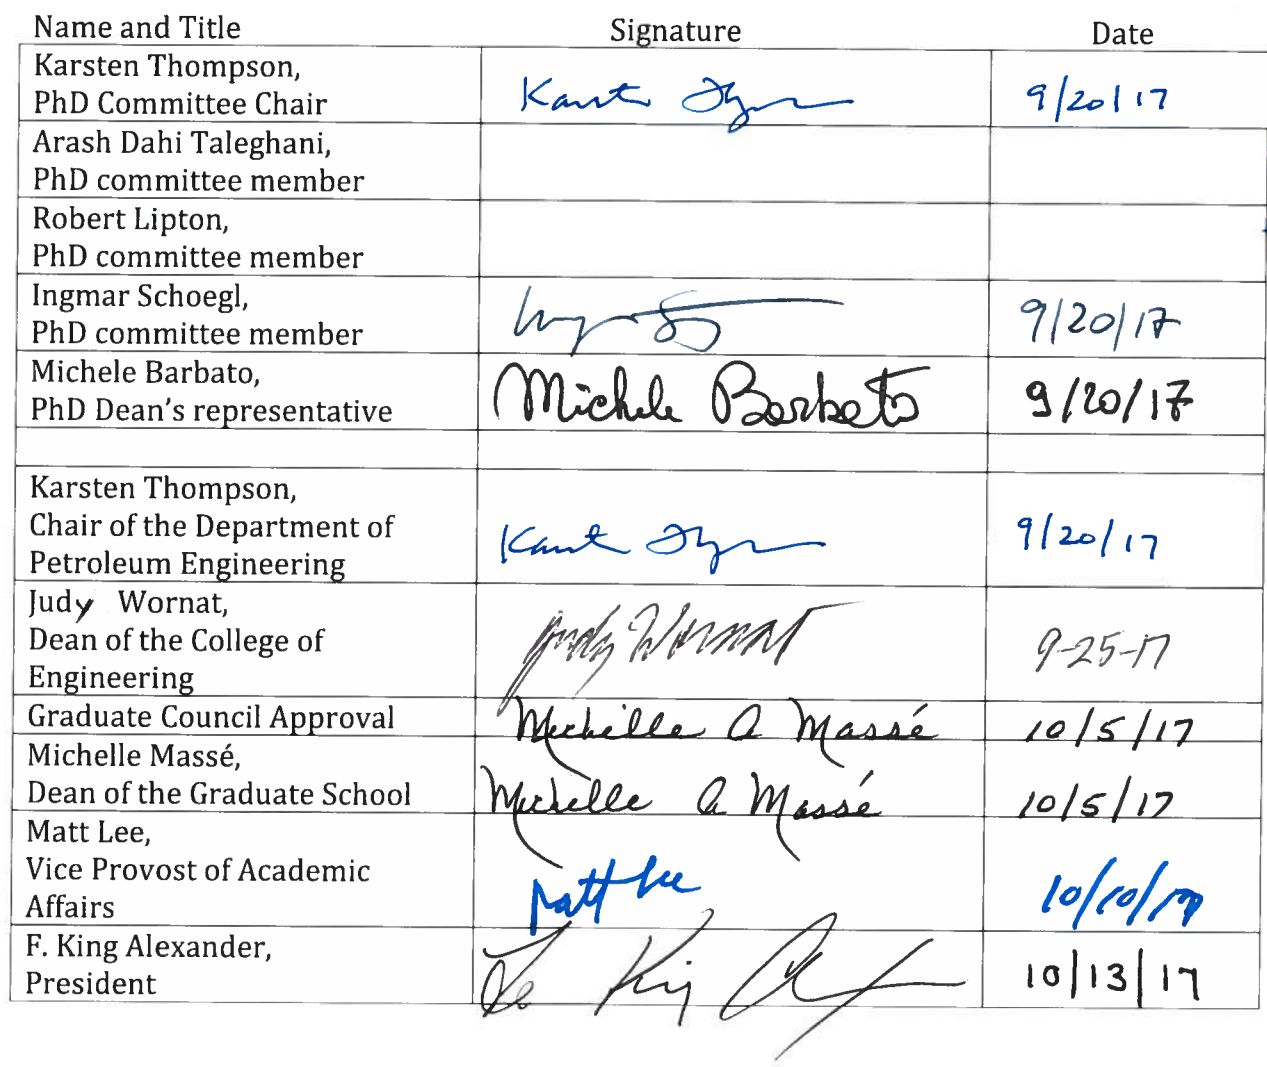 Name and Title Signature Date
Karsten Thompson,
PhD Committee Chair 9/20/17
Arash Dahi Taleghani,
PhD committee member
Robert Lipton,
PhD committee member
Ingmar Schoegl,
PhD committee member 9/20/17
Michele Barbato,
PhD Dean's representative Michele Barbato 9/20/17
Karsten Thompson,
Chair of the Department of
Petroleum Engineering 9/20/17
Judy Wornat,
Dean of the College of
Engineering Judy Wornat 9-25-17
Graduate Council Approval Michelle A Massé 10/5/17
Michelle Massé,
Dean of the Graduate School Michelle A Massé 10/5/17
Matt Lee,
Vice Provost of Academic
Affairs Matt Lee 10/10/17
F. King Alexander,
President 10/13/17